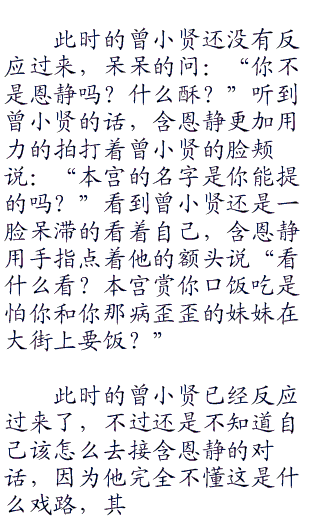 此时的曾小贤还没有反
应过来，呆呆的问：“你不
是恩静吗？什么酥？”听到
曾小贤的话，含恩静更加用
力的拍打着曾小贤的脸颊
说：“本宫的名字是你能提
的吗？”看到曾小贤还是一
脸呆滞的看着自己，含恩静
用手指点着他的额头说“看
什么看？本宫赏你口饭吃是
怕你和你那病歪歪的妹妹在
大街上要饭？”
此时的曾小贤已经反应
过来了，不过还是不知道自
己该怎么去接含恩静的对
话，因为他完全不懂这是什
么戏路，其